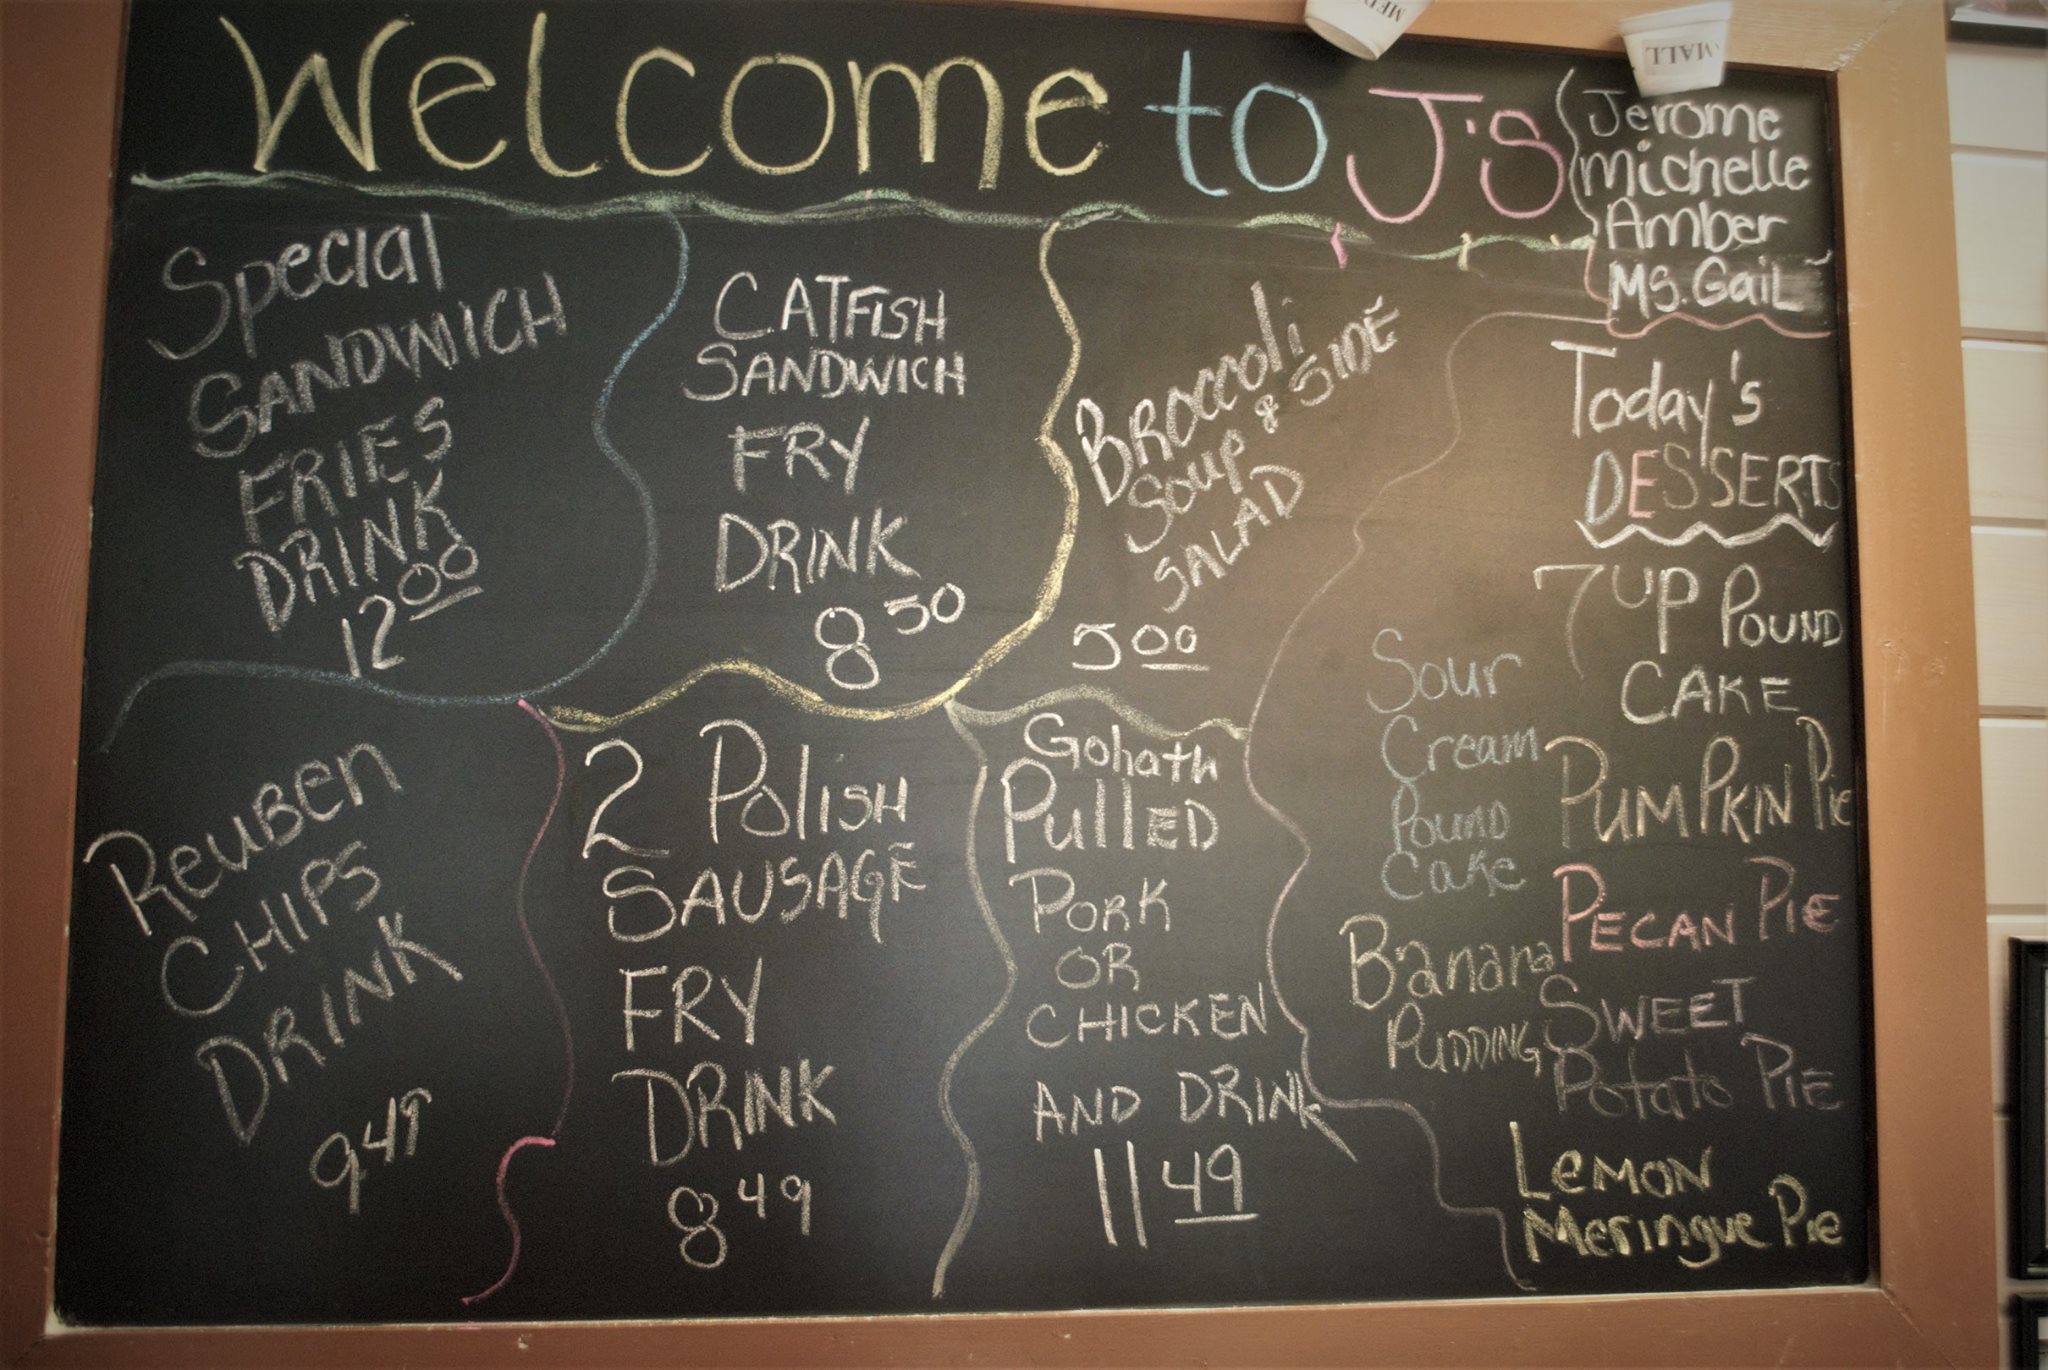 Welcome to J's
Jerome
Michelle
Amber
Ms. Gail
Special
SANDWICH
FRIES
DRINK
12 00
CATFISH
SANDWICH
FRY
DRINK
8 50
BROCCOLI
Soup & SIDE
SALAD
5 00
Reuben
CHIPS
DRINK
9 49
2 Polish
SAUSAGE
FRY
DRINK
8 49
Goliath
Pulled
PORK
OR
CHICKEN
AND DRINK
11 49
Today's
DESSERTS
7 UP POUND
CAKE
PUMPKIN Pie
PECAN PIE
SWEET
Potato PIE
LEMON
Meringue Pie
Sour
Cream
Pound
Cake
Banana
PUDDING
MALL